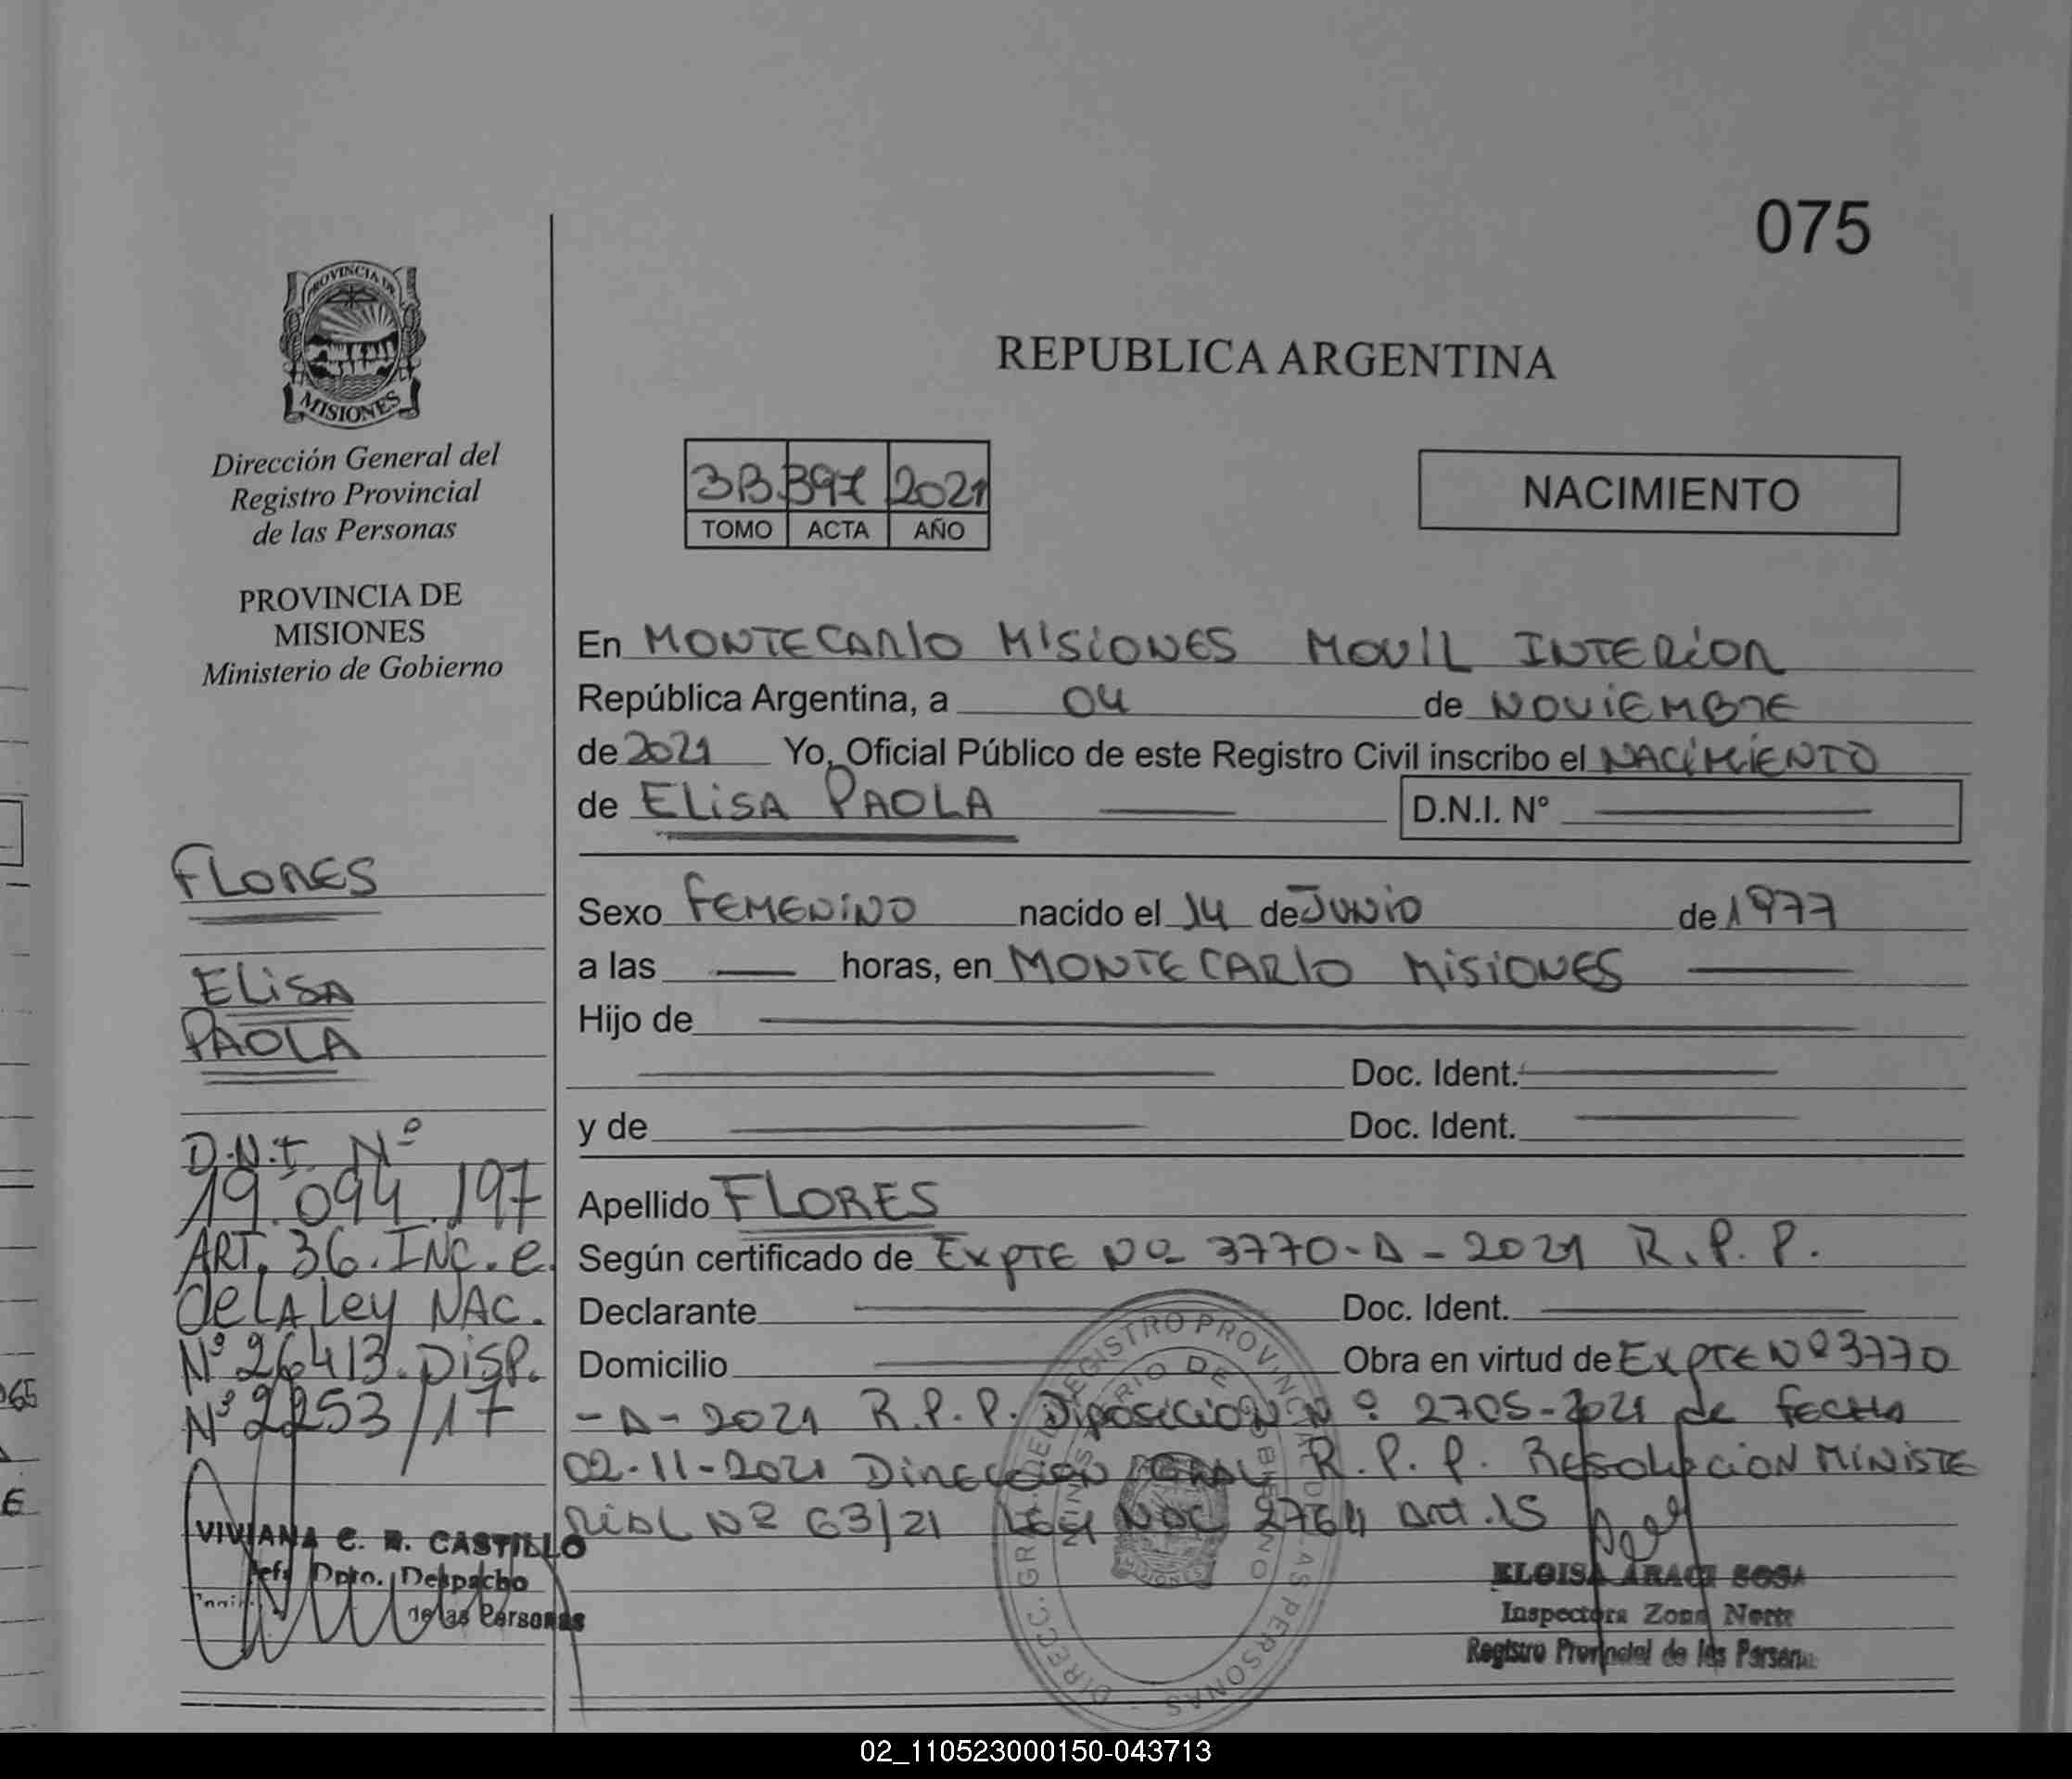 075
PROVINCIA DE
MISIONES
REPUBLICA ARGENTINA
Dirección General del
Registro Provincial
de las Personas
PROVINCIA DE
MISIONES
Ministerio de Gobierno
3B 397 2021
TOMO ACTA AÑO
NACIMIENTO
En MONTECARlO MISIONES MOVIL INTERIOR
República Argentina, a 04 de NOVIEMBRE
de 2021 Yo, Oficial Público de este Registro Civil inscribo el NACIMIENTO
de ELISA PAOLA D.N.I. N°
Sexo FEMENINO nacido el 14 de JUNIO de 1977
a las horas, en MONTECARlO MISIONES
Hijo de
Doc. Ident.
y de Doc. Ident.
Apellido FLORES
Según certificado de EXPTE Nº 3770-A-2021 R.P.P.
Declarante Doc. Ident.
Domicilio Obra en virtud de EXPTE Nº 3770
-A-2021 R.P.P. Diposicion Nº 2705-2021 de FECHA
02-11-2021 Direccion GRAL R.P.P. Resolucion MINISTE
RIAL Nº 63/21 LEY NAC 2764 Art. 15
FLORES
ELISA
PAOLA
D.N.I. Nº
19.094.197
ART. 36. INC. e.
de LA Ley NAC.
Nº 26413. DISP.
Nº 2253/17
VIVIANA C. R. CASTILLO
Jefe Dpto. Despacho
de las Personas
DIRECC. GRAL. DEL REGISTRO PROVINCIAL DE LAS PERSONAS
MINISTERIO DE GOBIERNO
ELOISA ARACI SOSA
Inspectora Zona Norte
Registro Provincial de las Personas
065
E
02_110523000150-043713